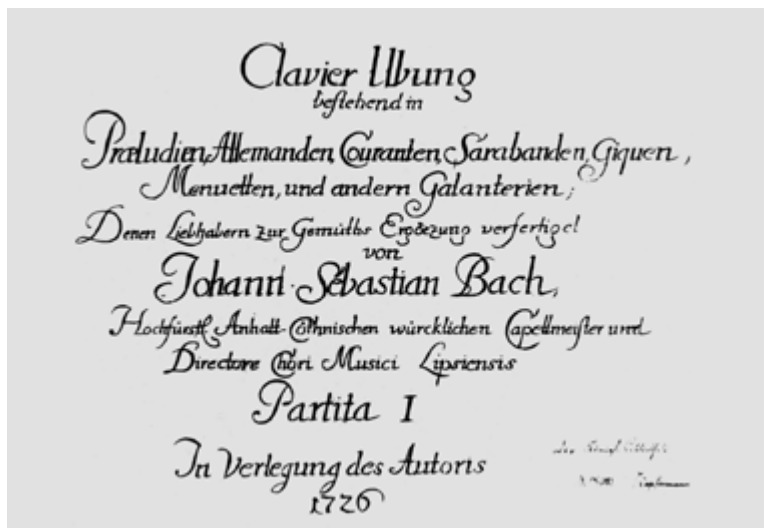 Clavier Ubung
bestehend in
Præludien, Allemanden, Couranten, Sarabanden, Giquen,
Menuetten, und andern Galanterien;
Denen Liebhabern zur Gemüths Ergoezung verfertiget
von
Johann Sebastian Bach,
Hochfürstl. Anhalt-Cöthnischen würcklichen Capellmeister und
Directore Chori Musici Lipsiensis
Partita I
In Verlegung des Autoris
1726